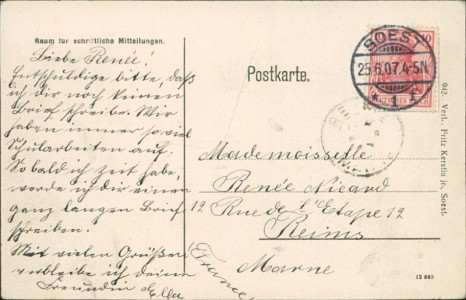 Raum für schriftliche Mitteilungen.
Liebe Renée!
Entschuldige bitte, daß
ich dir noch keinen
Brief schreibe. Wir
haben immer so viel
Schularbeiten auf.
Sobald ich Zeit habe,
werde ich dir einen
ganz langen Brief
schreiben.
Mit vielen Grüßen
verbleibe ich deine
Freundin Ella
Postkarte.
SOEST
25.6.07.4-5N
* 1 *
10
Mademoiselle
Renée Nicard
12 Rue de l'Etape 12
Reims
Marne
(France)
642. Verl. Fritz Kerstin jr., Soest.